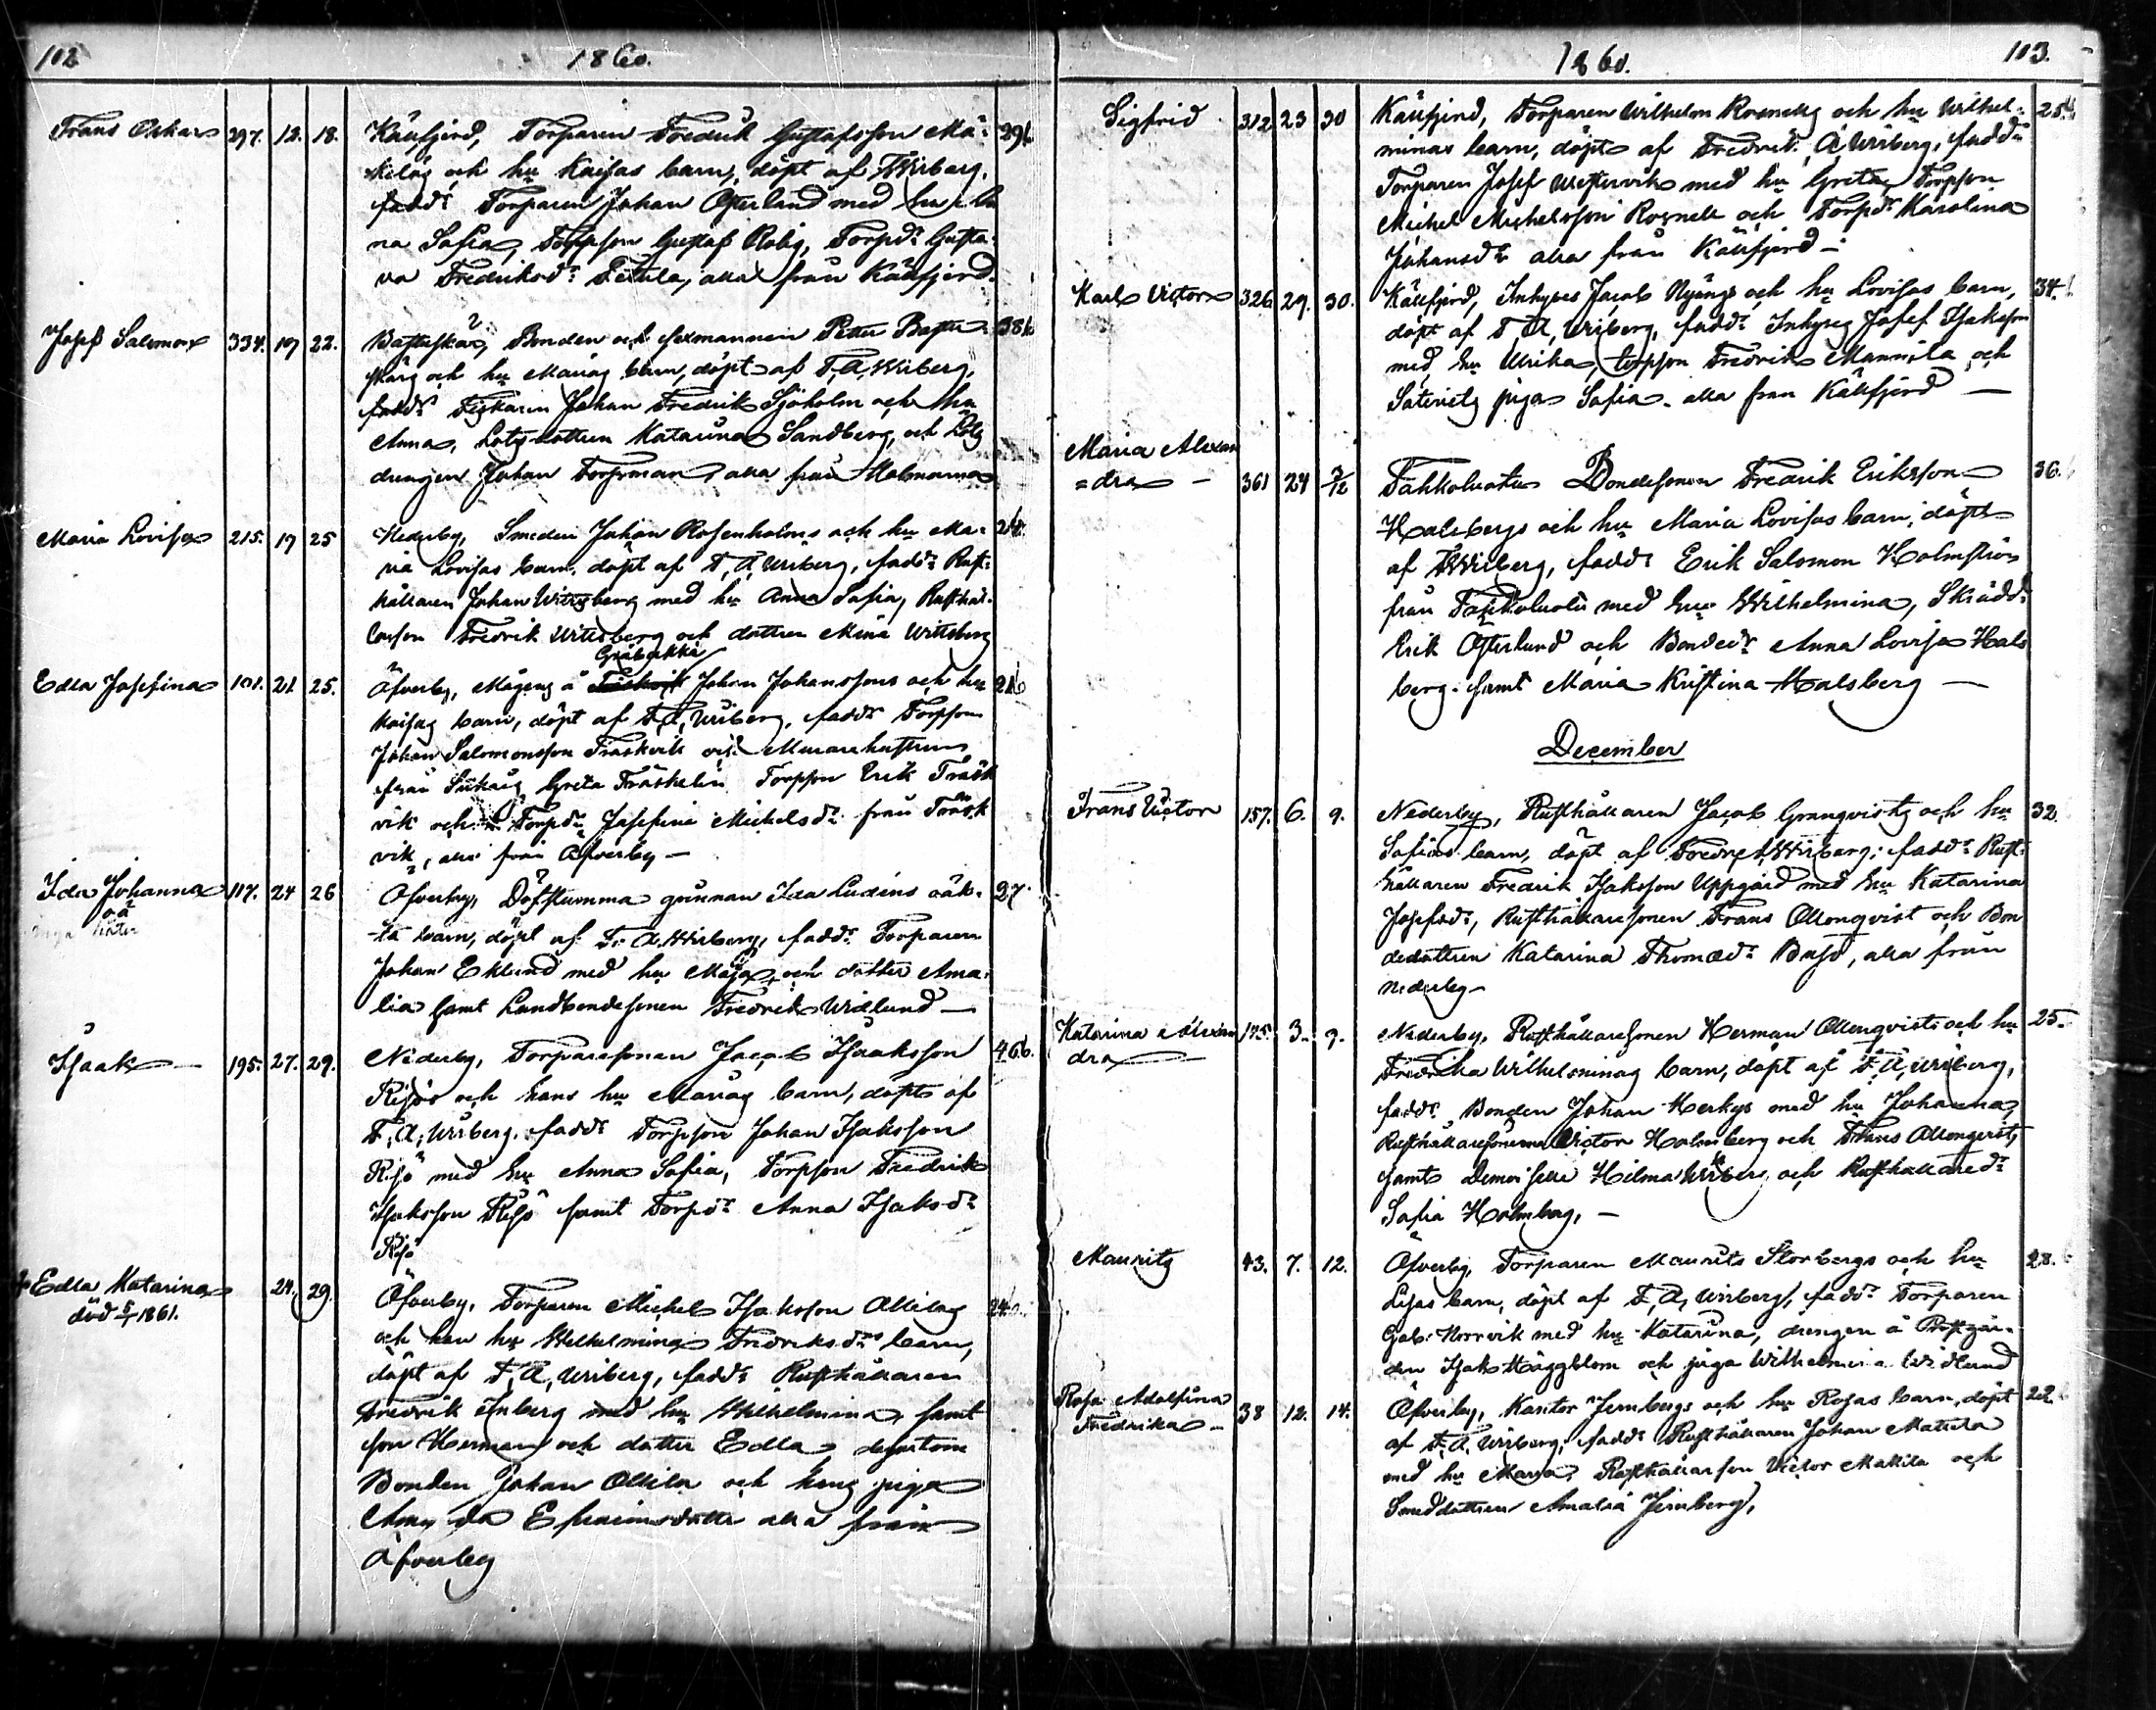 102
1860.
Frans Oskar 297. 12. 18. Källfjerd, Torparen Fredrik Gustafsson Mä- 39
kiläs och hu Kaisas barn, döpt af Wiberg,
fadd: Torparen Johan Österlund med hu Le
na Sofia, Torpson Gustaf Rolig, Torpd: Gusta
va Fredriksd: alla från Källfjerd.
Josef Salomon 334. 19 22. Bastuskär, Bonden och sexmannen Petter Bastu- 38
skärs och hu Marias barn, döpt af F. A. Wiberg,
fadd: Fiskaren Johan Fredrik Sjöholm och hu
Anna, Lotsdottren Katarina Sandberg, och Lots
drengen Johan Forsman, alla från Holmarna
Maria Lovisa 215. 19 25 Nederby, Smeden Johan Rosenholms och hu Ma- 24.
ria Lovisas barn, döpt af F. A. Wiberg, fadd: Rust-
hållaren Johan Wittsberg med hu Anna Sofia, Rusthål-
larson Fredrik Wittsberg och dottren Mina Wittsberg
Edla Josefina 101. 21 25. Öfverby, Mågens å Johan Johanssons och hu 21
Kaisas barn, döpt af F. A. Wiberg, fadd: Torpson
Johan Salomonsson Träskvik och Murarehustrun
från Greta Träskelin Torpson Erik Träsk
vik och Torpd: Josefina Mickelsd: från Träsk
vik, alla från Öfverby —
Ida Johanna 117. 24 26 Öfverby, Döfstumma qvinnan Ida Ludens oäk- 27.
oä
ta barn, döpt af F. A. Wiberg, fadd: Torparen
Johan Eklund med hu Maja och dotter Ama-
lia samt Landbondesonen Fredrik Widlund —
Isaak — 195. 27. 29. Nederby, Torparesonen Jacob Isaksson 46
Risjös och hans hu Marias barn, döpt af
F. A. Wiberg, fadd: Torpson Johan Isaksson
Risjö med hu Anna Sofia, Torpson Fredrik
Isaksson Risjö samt Torpd: Anna Isaksd:
Risjö
Edla Katarina 24. 29. Öfverby, Torparen Michel Isaksson Ollilas 24
död 5/1 1861. och han hu Wilhelmina Fredriksd:s barn,
döpt af F. A. Wiberg, fadd: Rusthållaren
Fredrik Inberg med hu Wilhelmina, samt
son Herman och dotter Edla dessutom
Bonden Johan Ollila och hans piga
Amanda Efraimsdotter alla från
Öfverby
1860.
103.
Sigfrid 312 23 30 Källfjerd, Torparen Wilhelm Rosnells och hu Wilhel- 25
minas barn, döpt af Fredrik A. Wiberg, fadd:
Torparen Josef Westervik med hu Greta, Torpson
Michel Michelsson Rosnell och Torpd: Karolina
Johansd:r alla från Källfjerd —
Karl Victor 326 29. 30. Källfjerd, Inhyses Jacob Nyängs och hu Lovisas barn, 34.
döpt af F. A. Wiberg, fadd: Inhyses Josef Isaksson
med hu Ulrika, torpson Fredrik Mannila och
piga Sofia. alla från Källfjerd —
Maria Alexan
=dra — 361 24 3/12 Tahkoluoto Bondesonen Fredrik Eriksson 36.
Halsbergs och hu Maria Lovisas barn, döpt
af F. A. Wiberg, fadd: Erik Salomon Holmström
från Tahkoluoto med hu Wilhelmina, Skrädd:
Erik Österlund och Bonded: Anna Lovisa Hals
berg samt Maria Kristina Halsberg —
December
Frans Victor 157. 6. 9. Nederby, Rusthållaren Jacob Granqvists och hu 32.
Sofias barn, döpt af Fredr: A. Wiberg; fadd: Rust-
hållaren Fredrik Isaksson Uppgård med hu Katarina
Josefsd:, Rusthållaresonen Frans Ollonqvist och Bon
dedottren Katarina Thomasd: alla från
Nederby —
Katarina Alexan 175. 3. 9. Nederby, Rusthållaresonen Herman Ollonqvists och hu 25.
dra — Fredrika Wilhelminas barn, döpt af F. A. Wiberg,
fadd: Bonden Johan med hu Johanna,
Rusthållaresönerna Victor Holmberg och Frans Ollonqvist,
samt Demoiselle Hilma Wiberg och Rusthållared:
Sofia Holmberg, —
Maurits 43. 7. 12. Öfverby, Torparen Maurits Storbergs och hu 28.
Lisas barn, döpt af F. A. Wiberg, fadd: Torparen
Gab: Norrvik med hu Katarina, drengen å Prestgår-
den Isak Häggblom och piga Wilhelmina Widlund
Rosa Adolfina 38 12. 14. Öfverby, Kantor Jernbergs och hu Rosas barn, döpt 22
Fredrika — af F. A. Wiberg; fadd: Rusthållaren Johan Mattila
med hu Maria, Rusthållarson Victor Mattila och
Smeddottren Amalia Jernberg,